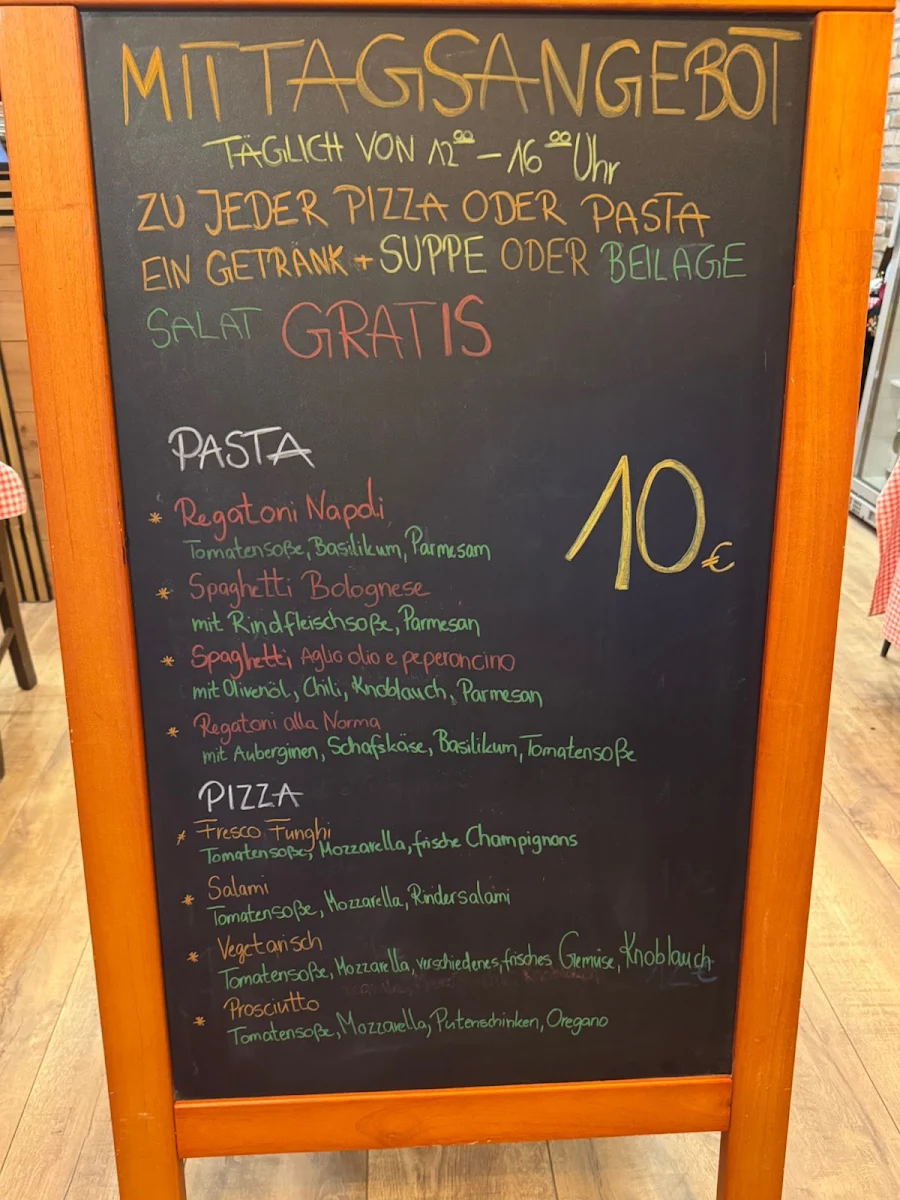 MITTAGSANGEBOT
TÄGLICH VON 12⁰⁰ – 16⁰⁰ Uhr
ZU JEDER PIZZA ODER PASTA
EIN GETRÄNK + SUPPE ODER BEILAGE
SALAT GRATIS
PASTA
10€
* Regatoni Napoli
Tomatensoße, Basilikum, Parmesam
* Spaghetti Bolognese
mit Rindfleischsoße, Parmesan
* Spaghetti Aglio olio e peperoncino
mit Olivenöl, Chili, Knoblauch, Parmesan
* Regatoni alla Norma
mit Auberginen, Schafskäse, Basilikum, Tomatensoße
PIZZA
* Fresco Funghi
Tomatensoße, Mozzarella, frische Champignons
* Salami
Tomatensoße, Mozzarella, Rindersalami
* Vegetarisch
Tomatensoße, Mozzarella, verschiedenes, frisches Gemüse, Knoblauch
* Prosciutto
Tomatensoße, Mozzarella, Putenschinken, Oregano